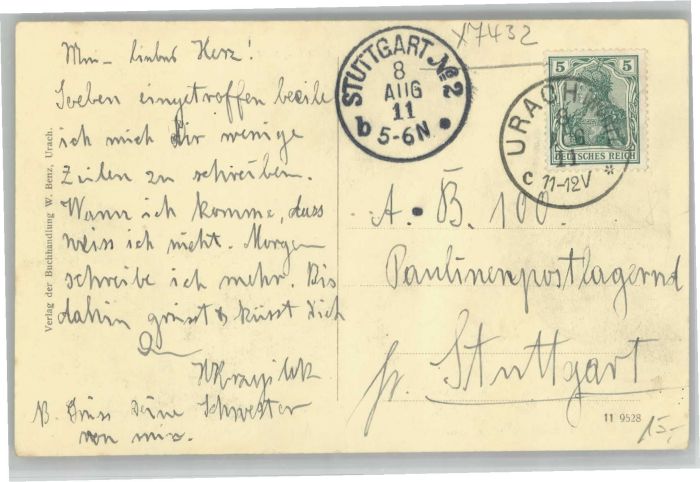 Mein liebes Herz!
Soeben eingetroffen beeile
ich mich Dir wenige
Zeilen zu schreiben.
Wann ich komme, dass
weiss ich nicht. Morgen
schreibe ich mehr. Bis
dahin grüsst & küsst Dich
NB. Grüss Deine Schwester
von mir.
Verlag der Buchhandlung W. Benz, Urach.
X7432
STUTTGART No 2
8
AUG
11
b 5-6N
5 5
DEUTSCHES REICH
URACH
8
11
c 11-12V *
A. B. 100.
Paulinenpostlagernd
Stuttgart
11 9528
15,-